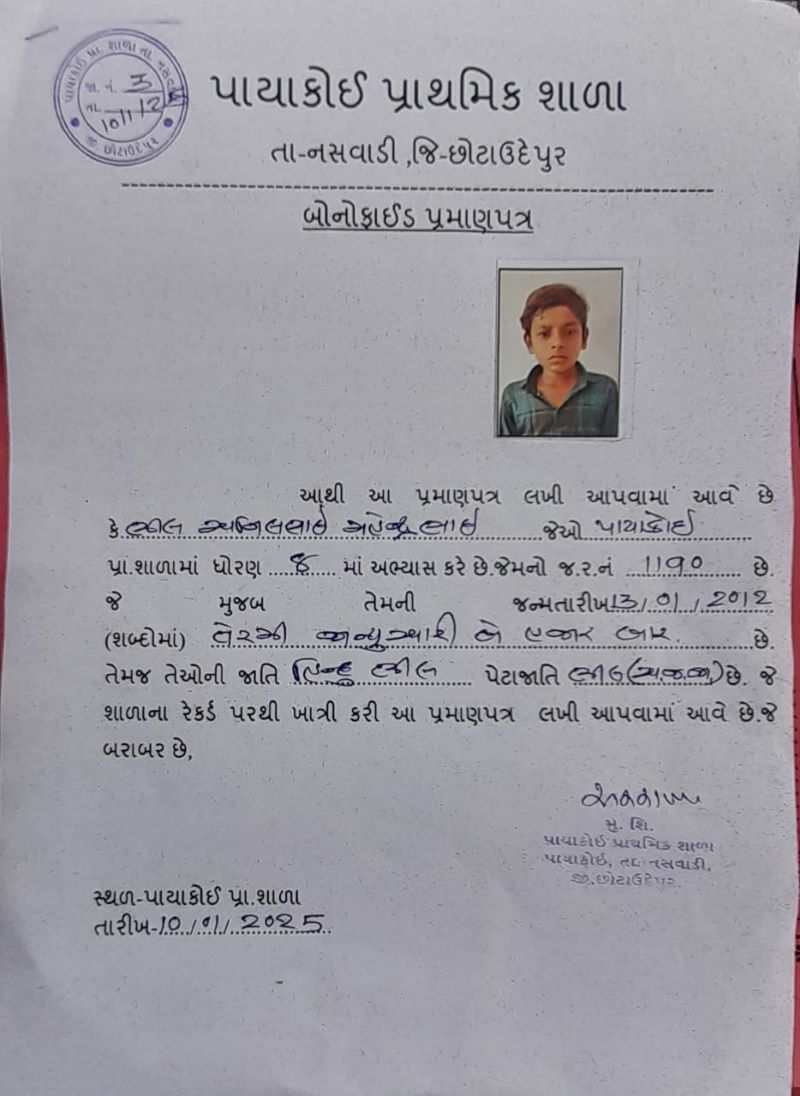 પાયાકોઈ પ્રા. શાળા તા. નસવાડી
જા. નં. 3
તા. 10/1/2
જી. છોટાઉદેપુર
પાયાકોઈ પ્રાથમિક શાળા
તા-નસવાડી ,જિ-છોટાઉદેપુર
બોનોફાઈડ પ્રમાણપત્ર
આથી આ પ્રમાણપત્ર લખી આપવામાં આવે છે
કે ભીલ અનિલભાઈ મહેન્દ્રભાઈ જેઓ પાયાકોઈ
પ્રા.શાળામાં ધોરણ ૬ માં અભ્યાસ કરે છે.જેમનો જ.ર.નં 1190 છે.
જે મુજબ તેમની જન્મતારીખ 13/01/2012
(શબ્દોમાં) તેરમી જાન્યુઆરી બે હજાર બાર. છે.
તેમજ તેઓની જાતિ હિન્દુ ભીલ પેટાજાતિ ભીલ(અ.જ.જા) છે. જે
શાળાના રેકર્ડ પરથી ખાત્રી કરી આ પ્રમાણપત્ર લખી આપવામાં આવે છે.જે
બરાબર છે,
મુ. શિ.
પાયાકોઈ પ્રાથમિક શાળા
પાયાકોઈ, તા. નસવાડી,
જી.છોટાઉદેપુર.
સ્થળ-પાયાકોઈ પ્રા.શાળા
તારીખ-10/01/2025